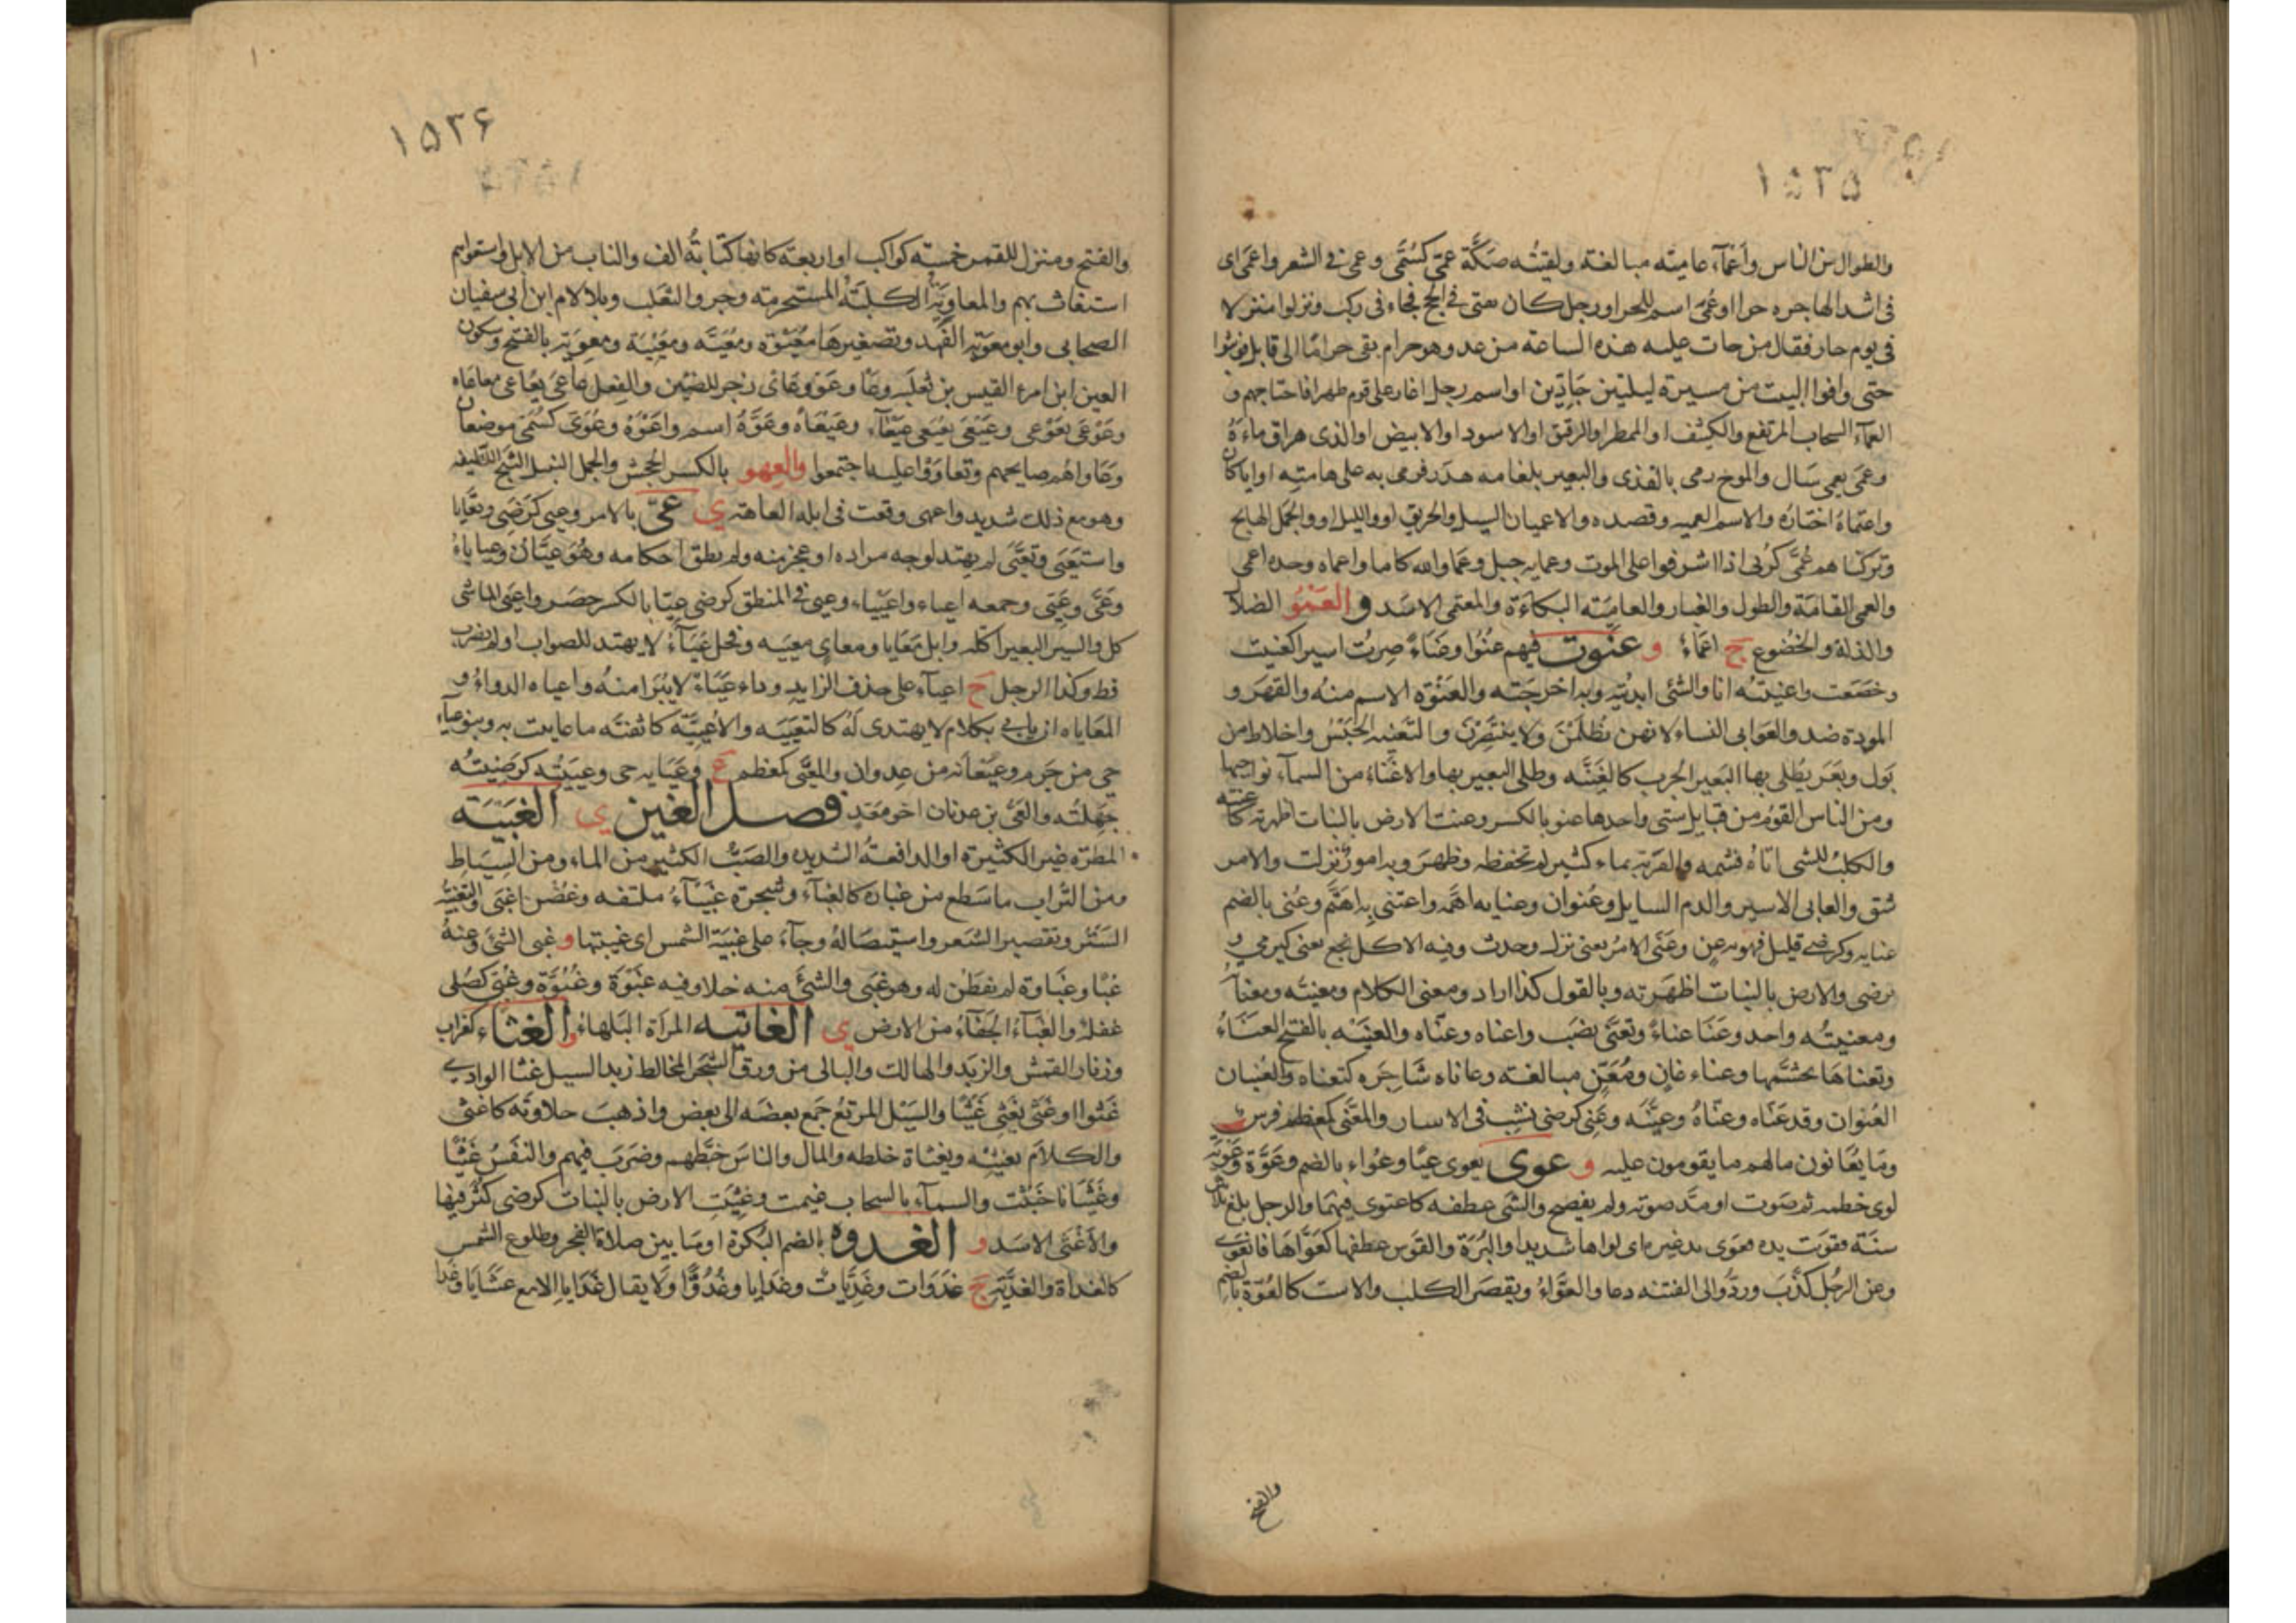 ١٥٣٥
والطوال من الناس وأعماء عامية مبالغة ولقيته صكة عمى كسمى وعمى في الشعر واعمى اى
فى اشد الهاجره حرا او عمى اسم للحر اور جل كان يفتى فى الحج فجاء فى ركب ونزلوا منزلا
فى يوم حار فقال من جات عليه هذه الساعة من غد وهو حرام بقى حراما الى قابل فوثبوا
حتى وافوا البيت من مسيرة ليلتين جادين او اسم رجل اغار على قوم ظهرا فاجتاحهم و
العماء السحاب المرتفع والكثيف او الممطر او الرقيق او الاسود او الابيض او الذى هراق ماءه
وعمى يعمى سال والموج رمى بالقذى والبعير بلغامه هدر فرمى به على هامته او ايا كان
واعتماه اختاره والاسم العميه وقصده والاعميان السيل والحريق او والليل او والجمل الهايج
وتركناهم عمى كربى اذا اشرفوا على الموت وعمايه جبل وعما والله كاما واعماه وجده اعمى
والعمى القامة والطول والغبار والعامية البكاءة والمعتمى الاسد و العمو الضلا
والذلة والخضوع ج اعماء و عنوت فيهم عنوا وعناء صرت اسيرا كعنيت
وخضعت واعنيته انا والشئ ابديته وبه اخرجته والعنوة الاسم منه والقهر و
المودة ضد والعوانى النساء لانهن يظلمن ولا ينتصرن والتعنيه الحبس واخلاط من
بول وبعر يطلى بها البعير الجرب كالعنية وطلى البعير بها والاعناء من السماء نواحيها
ومن الناس القوم من قبايل شتى واحدها عنو بالكسر وعنت الارض بالنبات اظهرته كاعنته
والكلب للشى اتاه فشمه والقربة بماء كثير لم تحفظه فظهر وبه امور نزلت والامر
شق والعانى الاسير والدم السايل وعنوان وعنايه اهمه واعتنى به اهتم وعنى بالضم
عنايه وكرضى قليل فهو به عن وعنى الامر يعنى نزل وحدث وفيه الاكل نجع يعنى كيرمى و
يرضى والارض بالنبات اظهرته وبالقول كذا اراد ومعنى الكلام ومعنيته ومعناته
ومعنيته واحد وعنا عناء وتعنى نصب واعناه وعناه والعنيه بالفتح العناء
وتعناها تجشمها وعناء عان ومعن مبالغة وعاناه شاجره كتعناه والعنيان
العنوان وقد عناه وعناه وعينه وعنى كرضى نشب فى الاسار والمعنى كمعظم فرس
وما يعانون مالهم ما يقومون عليه و عوى يعوى عيا وعواء بالضم وعوة وعوية
لوى خطمه ثم صوت او مد صوته ولم يفصح والشى عطفه كاعتوى فيهما والرجل بلغ ثلاثين
سنة فقويت يده فعوى يد غيره اى لواها شديدا والبرة والقوس عطفها كعواها فانعوى
وعن الرجل كذب ورد والى الفتنه دعا والعواء ويقصر الكلب والاست كالعوة بالضم
والفتح
١٥٣۶
والفتح ومنزل للقمر خمسة كواكب او اربعة كانها كتابة الف والناب من الابل واستعواهم
استغاث بهم والمعاوية الكلبة المستحرمة وجرو الثعلب وبلا لام ابن ابى سفيان
الصحابى وابو معوية الفهد وتصغيرها معيوة ومعية ومعيية ومعوية بالفتح وسكون
العين ابن امرء القيس بن ثعلبه وعا وعو وعاى زجر للضئين والفعل عاعى يعاعى معاعاه
وعوعى يعوعى وعيعى يعيعى عيعاء وعيعاه وعوة اسم واعوة وعوى كسمى موضعان
وعاواهم صايحهم وتعاووا عليه اجتمعوا والعهو بالكسر الجحش والجمل النبيل الثبج اللطيف
وهو مع ذلك شديد واعهى وقعت فى ابله العاهة ي عى بالامر وعيى كرضى وتعايا
واستعيى وتعيى لم يهتد لوجه مراده او عجز منه ولم يطق احكامه وهو عيان وعياياء
وعى وعيى وجمعه اعياء واعيياء وعيى فى المنطق كرضى عيا بالكسر حصر واعيى الماشى
كل والسير البعير اكله وابل معايا ومعاى معييه وفحل عياء لا يهتد للصواب او لم يضرب
قط وكذا الرجل ج اعياء على حذف الزايد وداء عياء لا يبرا منه واعياه الداء و
المعاياه ان ياتى بكلام لا يهتدى له كالتعييه والاعيية كاثفية ما عاييت به وبنو عياء
حى من جرم وعيعانه من عدوان والمعيى كمعظم ع وعيايه حى وعييته كرضيته
جهلته والعى بن عدنان اخو معد فصل الغين ي الغبية
المطرة غير الكثيرة او الدافعة الشديده والصب الكثير من الماء ومن السياط
ومن التراب ما سطع من غباره كالغباء وشجرة غبياء ملتفه وغصن اغبى والتغبيه
الستر وتقصير الشعر واستيصاله وجاء على غبية الشمس اى غيبتها و غبى الشئ وعنه
غبا وغباوة لم يفطن له وهو غبى والشئ منه خلا وفيه غبوة وغبوة وغبى كصلى
غفلة والغباء الخفاء من الارض ي الغاتيه المرأة البلهاء و الغثاء كغراب
وزنار القمش والزبد والهالك والبالى من ورق الشجر المخالط زبد السيل غثا الوادى
غثوا وغثى يغثى غثيا والسيل المرتع جمع بعضه الى بعض واذهب حلاوته كاغثى
والكلام يغثيه ويغثاه خلطه والمال والناس خبطهم وضرب فيهم والنفس غثيا
وغثيانا خبثت والسماء بالسحاب غيمت وغثيت الارض بالنبات كرضى كثر فيها
والاغثى الاسد و الغدوه بالضم البكرة او ما بين صلاة الفجر وطلوع الشمس
كالغداة والغدية ج غدوات وغديات وغدايا وغدوا ولا يقال غدايا الا مع عشايا وغدا